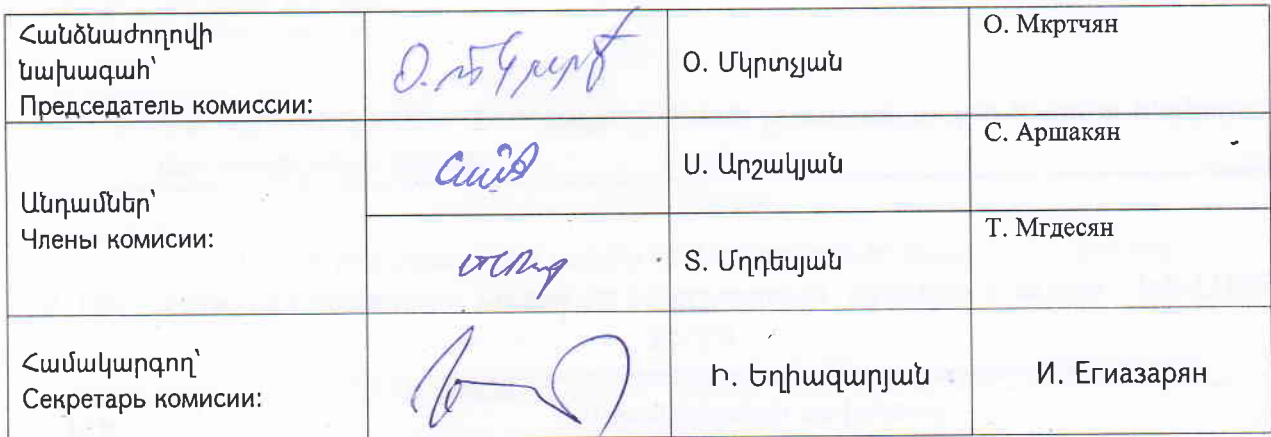 Հանձնաժողովի
նախագահ՝
Председатель комиссии:
Օ. Մկրտչյան
О. Мкртчян
Անդամներ՝
Члены комисии:
Ս. Արշակյան
С. Аршакян
Տ. Մղդեսյան
Т. Мгдесян
Համակարգող՝
Секретарь комиссии:
Ի. Եղիազարյան
И. Егиазарян